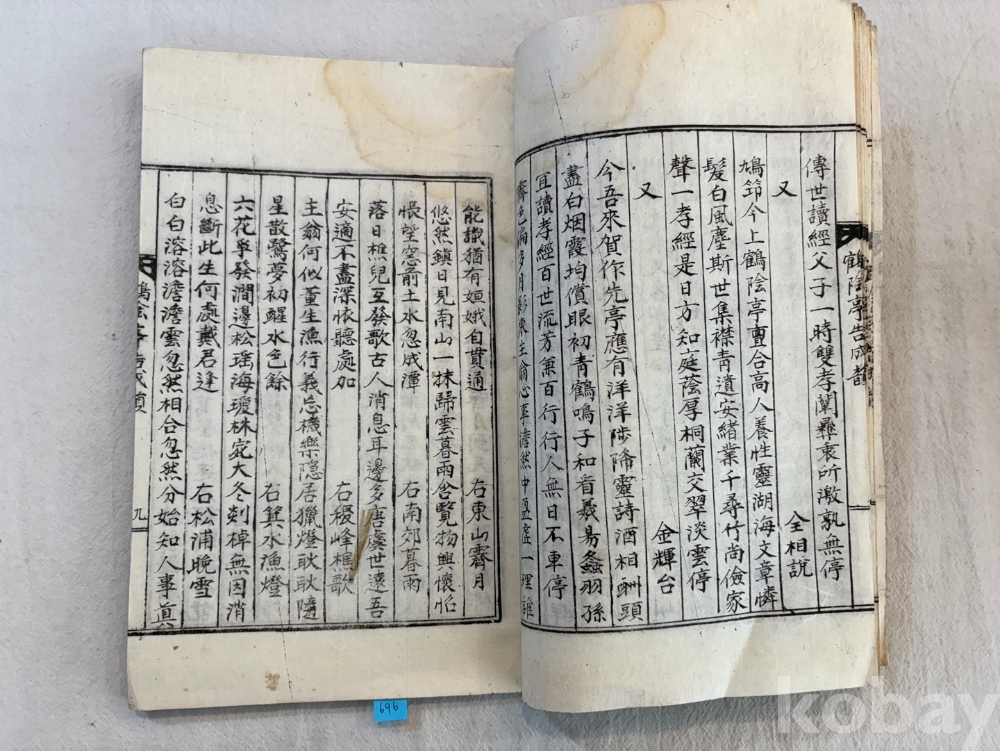 傳世讀經父子一時雙孝蘭彝秉所激孰無停
又 全相說
鳩笻今上鶴陰亭亶合高人養性靈湖海文章憐
髮白風塵斯世集襟靑遺安緖業千尋竹尚儉家
聲一孝經是日方知庭蔭厚桐蘭交翠淡雲停
又 金輝台
今吾來賀作先亭應有洋洋陟降靈詩酒相酬頭
盡白烟霞均償眼初靑鶴鳴子和看羲易螽羽孫
冝讀孝經百世流芳兼百行行人無日不車停
鶴陰亭告成韻
能識猶有姮娥自貫通 右東山霽月
悠然鎭日見南山一抹歸雲暮雨含覽物興懷怡
悵望窓前土水忽成潭 右南郊暮雨
落日樵兒互發歌古人消息耳邊多唐虞世遠吾
安適不盡深懷聽處加 右稷峰樵歌
主翁何似董生漁行義忘機樂隱居獵燈耿耿隨
星散驚夢初醒水色餘 右箕水漁燈
六花爭發澗邊松瑤海瓊林宛大冬剡棹無因消
息斷此生何處戴君逢 右松浦晩雪
白白溶溶澹澹雲忽然相合忽然分始知人事眞
鶴陰亭告成韻
九
696
kobay